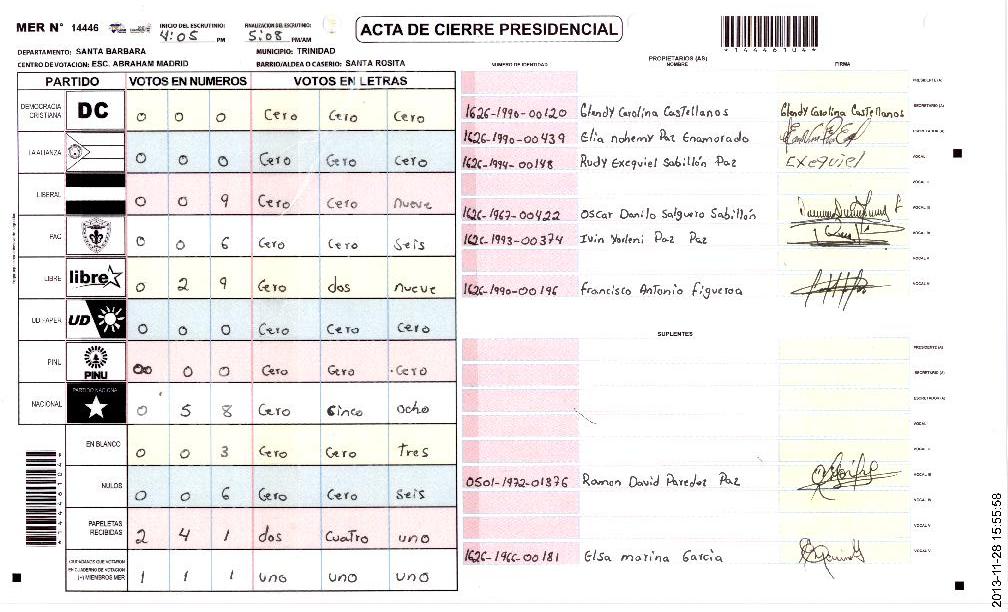 MER N° 14446 INICIO DEL ESCRUTINIO: 4:05 PM FINALIZACION DEL ESCRUTINIO: 5:08 PM/AM
ACTA DE CIERRE PRESIDENCIAL
DEPARTAMENTO: SANTA BARBARA MUNICIPIO: TRINIDAD
CENTRO DE VOTACION: ESC. ABRAHAM MADRID BARRIO/ALDEA O CASERIO: SANTA ROSITA
PARTIDO VOTOS EN NUMEROS VOTOS EN LETRAS
DEMOCRACIA CRISTIANA DC 0 0 0 Cero Cero Cero
LA ALIANZA 0 0 0 Cero Cero Cero
LIBERAL 0 0 9 Cero Cero nueve
PAC 0 0 6 Cero Cero Seis
LIBRE libre 0 2 9 Cero dos nueve
UD FAPER UD 0 0 0 Cero Cero Cero
PINU PINU 0 0 0 Cero Cero Cero
NACIONAL PARTIDO NACIONAL 0 5 8 Cero Cinco Ocho
EN BLANCO 0 0 3 Cero Cero tres
NULOS 0 0 6 Cero Cero Seis
PAPELETAS RECIBIDAS 2 4 1 dos Cuatro uno
CIUDADANOS QUE VOTARON EN CUADERNO DE VOTACION (+) MIEMBROS MER 1 1 1 uno uno uno
PROPIETARIOS (AS)
NUMERO DE IDENTIDAD NOMBRE FIRMA
PRESIDENTE (A)
1626-1990-00120 Glendy Carolina Castellanos Glendy Carolina Castellanos SECRETARIO (A)
1626-1990-00439 Elia nohemy Paz Enamorado
1626-1994-00148 Rudy Exequiel Sabillón Paz Exequiel VOCAL
VOCAL II
1626-1967-00422 Oscar Danilo Salguero Sabillón VOCAL III
1626-1993-00374 Ivin Yorleni Paz Paz VOCAL IV
VOCAL V
1626-1990-00196 Francisco Antonio Figueroa
SUPLENTES
PRESIDENTE (A)
SECRETARIO (A)
ESCRUTADOR (A)
VOCAL
VOCAL II
0501-1972-01876 Ramon David Paredez Paz VOCAL III
VOCAL IV
VOCAL V
1626-1966-00181 Elsa marina Garcia
2013-11-28 15:55:58